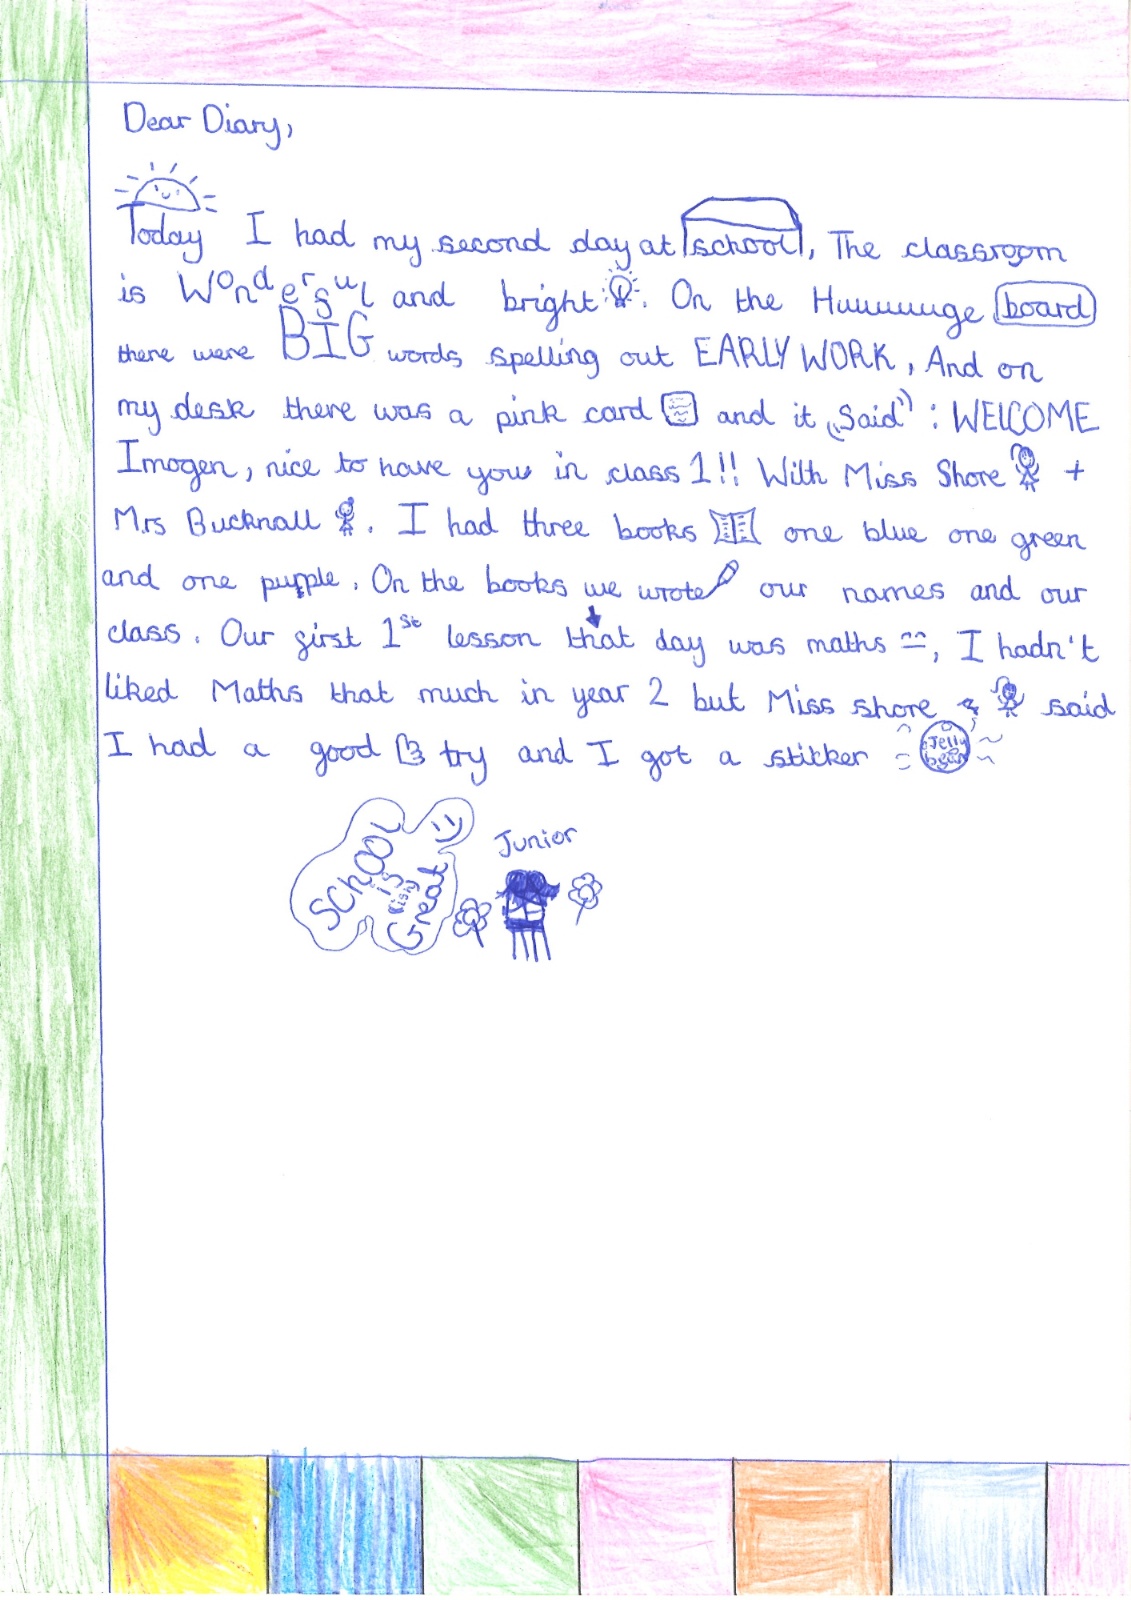 Dear Diary,
Today I had my second day at school, The classroom
is Wonderful and bright. On the Huuuuuge board
there were BIG words spelling out EARLY WORK, And on
my desk there was a pink card and it "Said": WELCOME
Imogen, nice to have you in class 1!! With Miss Shore +
Mrs Bucknall. I had three books one blue one green
and one pupple. On the books we wrote our names and our
class. Our first 1st lesson that day was maths, I hadn't
liked Maths that much in year 2 but Miss shore said
I had a good try and I got a sticker Jelly bean
SChOOL
is
Great
Junior